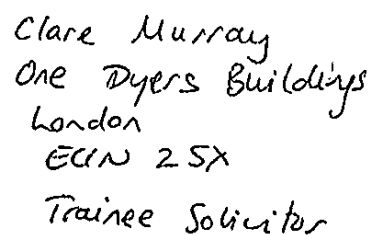 Clare Murray
One Dyers Buildings
London
EC1N 2SX
Trainee Solicitor